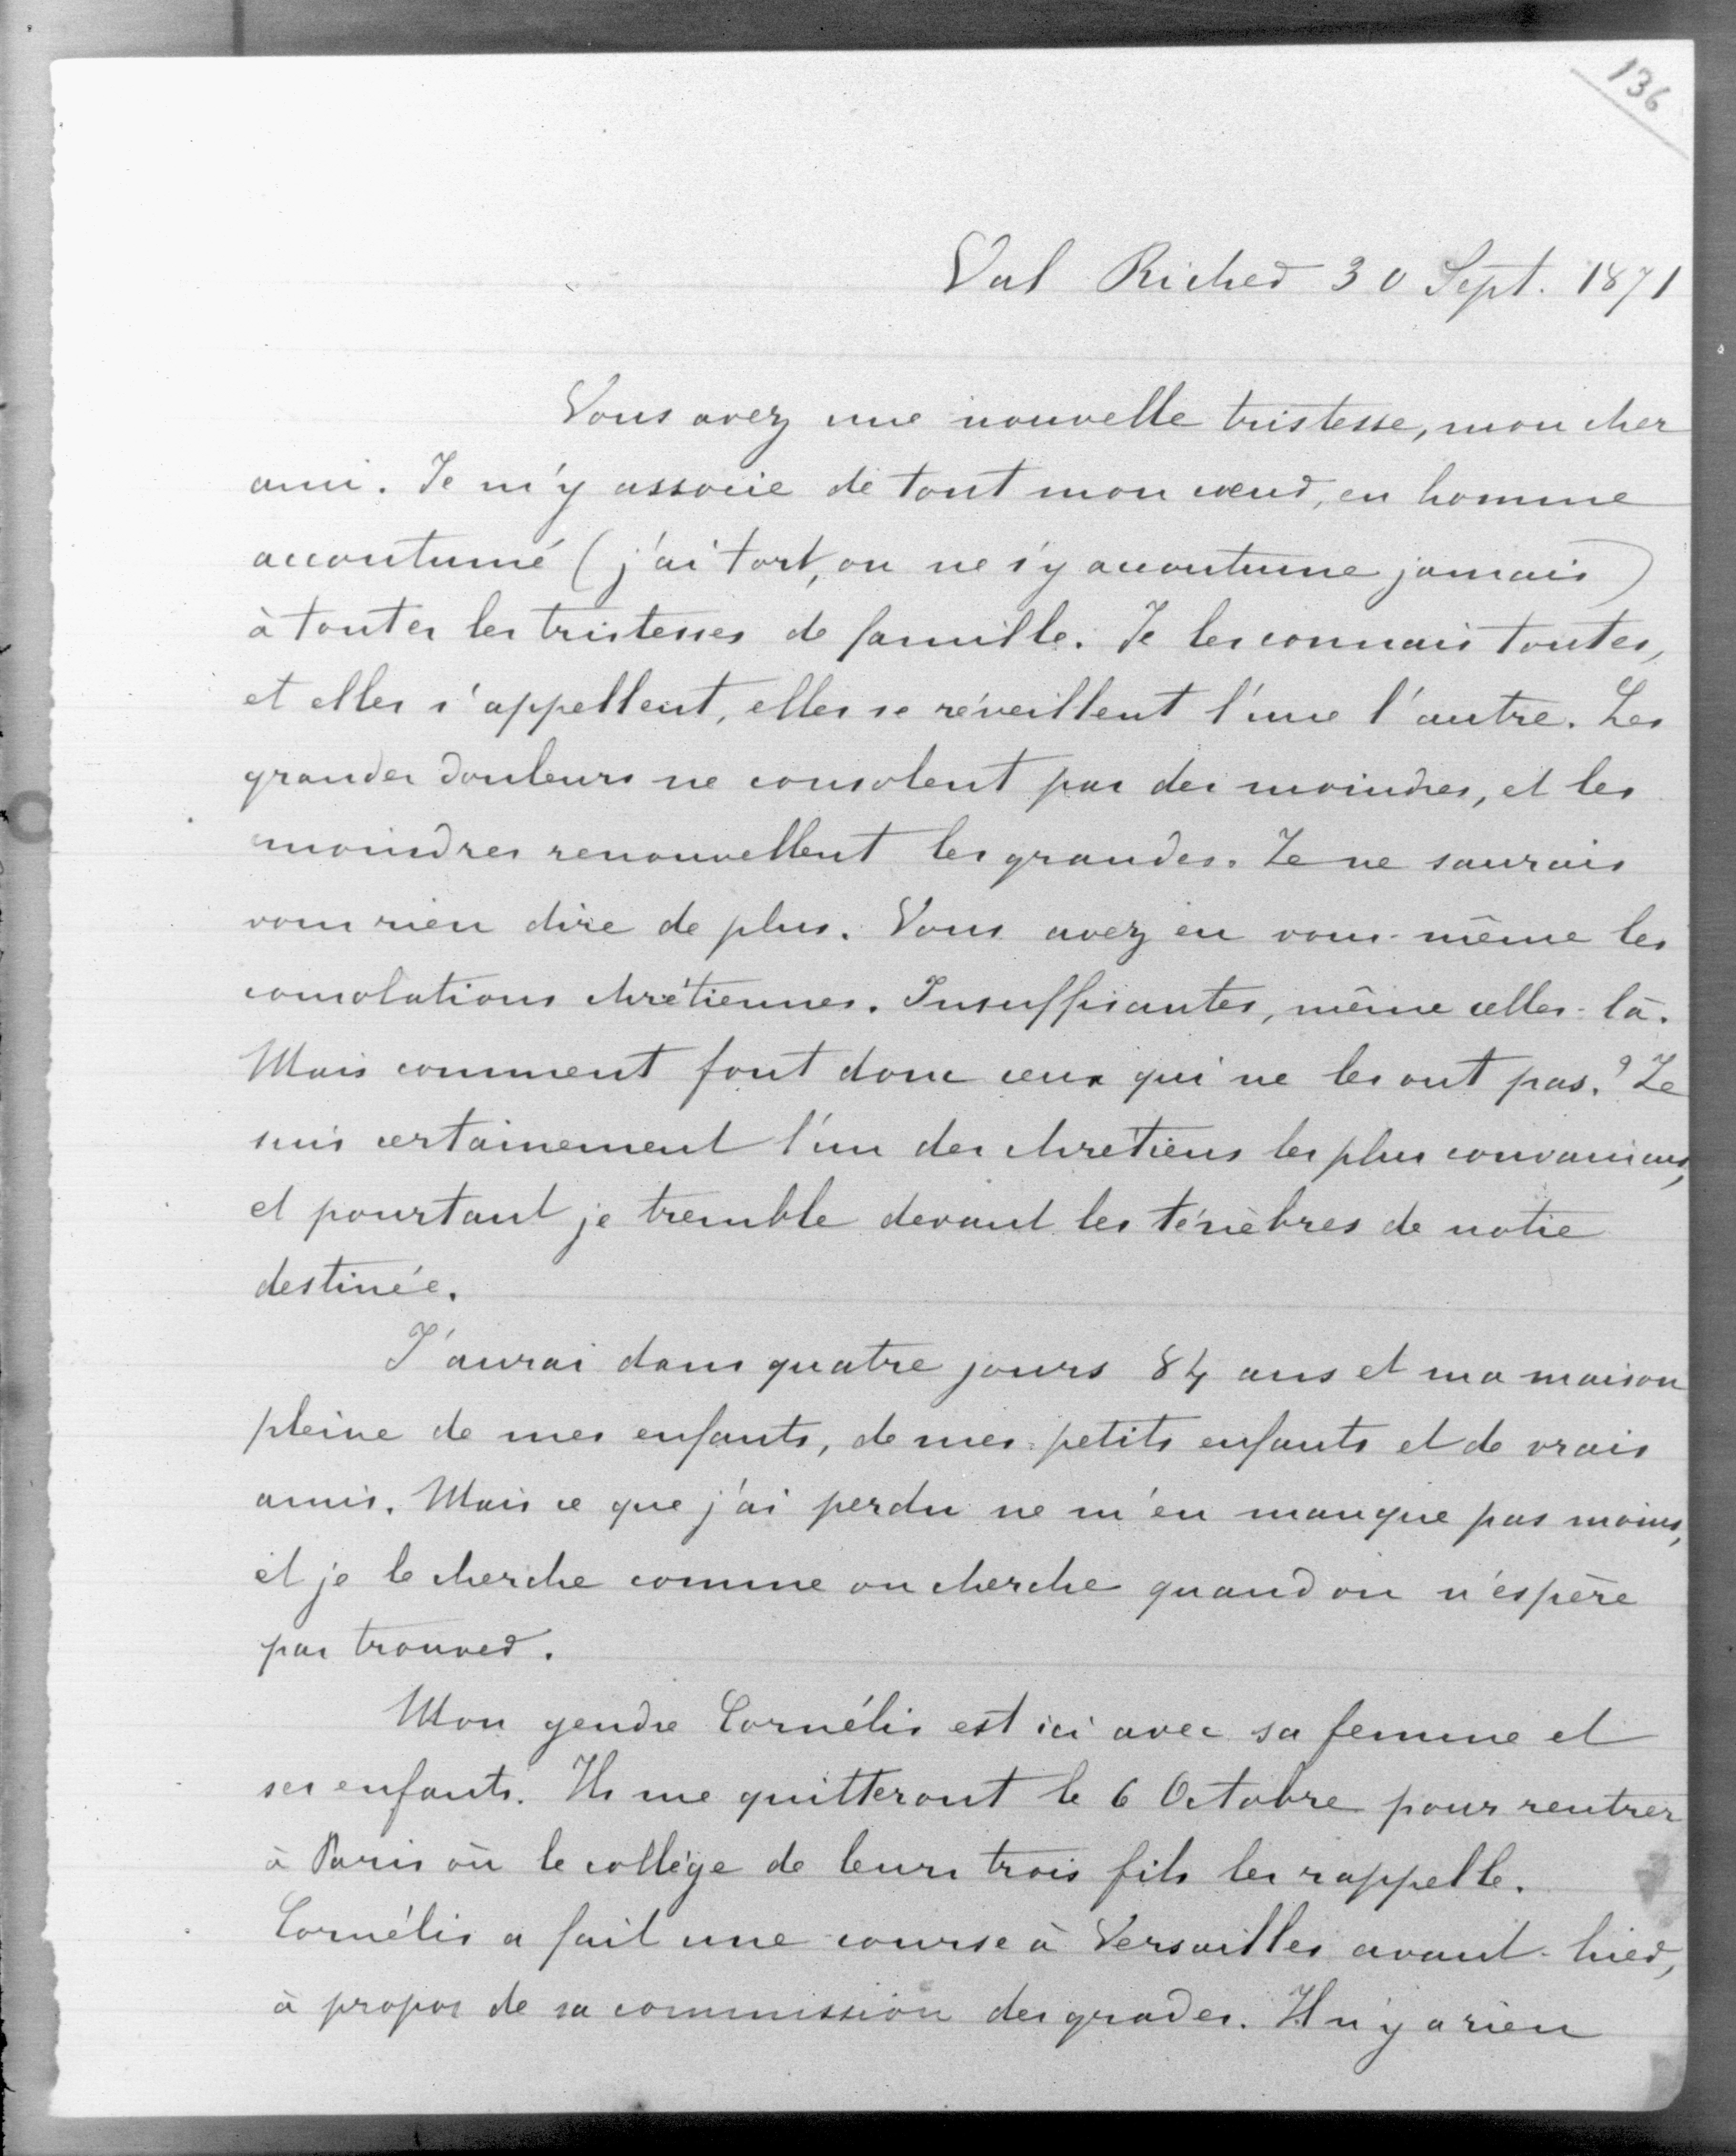 136
Val Richer 30 Sept. 1871
Vous avez une nouvelle tristesse, mon cher
ami. Je m'y associe de tout mon coeur, en homme
accoutumé (j'ai tort, on ne s'y accoutume jamais)
à toutes les tristesses de famille. Je les connais toutes,
et elles s'appellent, elles se réveillent l'une l'autre. Les
grandes douleurs ne consolent pas des moindres, et les
moindres renouvellent les grandes. Je ne saurais
vous rien dire de plus. Vous avez en vous-même les
consolations chrétiennes. Insuffisantes, même celles-là.
Mais comment font donc ceux qui ne les ont pas ? Je
suis certainement l'un des chrétiens les plus convaincus,
et pourtant je tremble devant les ténèbres de notre
destinée.
J'aurai dans quatre jours 84 ans et ma maison
pleine de mes enfants, de mes petits enfants et de vrais
amis. Mais ce que j'ai perdu ne m'en manque pas moins,
et je le cherche comme on cherche quand on n'espère
pas trouver.
Mon gendre Cornélis est ici avec sa femme et
ses enfants. Ils me quitteront le 6 Octobre pour rentrer
à Paris où le collège de leurs trois fils les rappelle.
Cornélis a fait une course à Versailles avant-hier,
à propos de sa commission des grades. Il n'y a rien